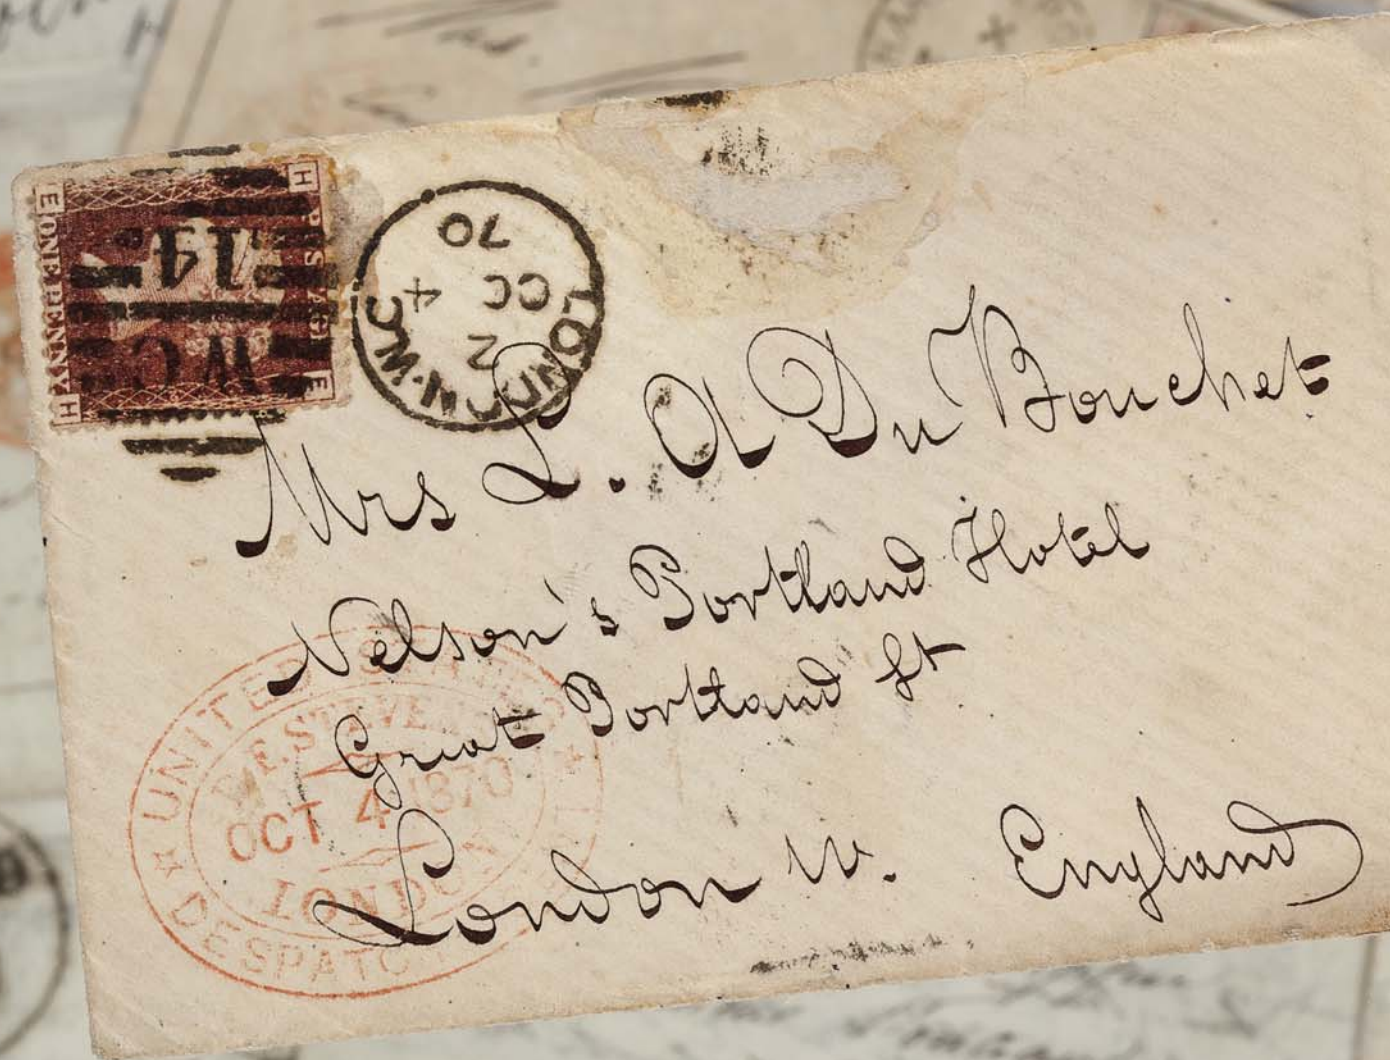 E H
ONE PENNY
H E
14
WC
LONDON·W.C
N
OC 4
70
Mrs L. A Du Bouchet
Nelson's Portland Hotel
Great Portland St
London W. England
UNITED
OCT 4 1870
LONDON
DESPATC